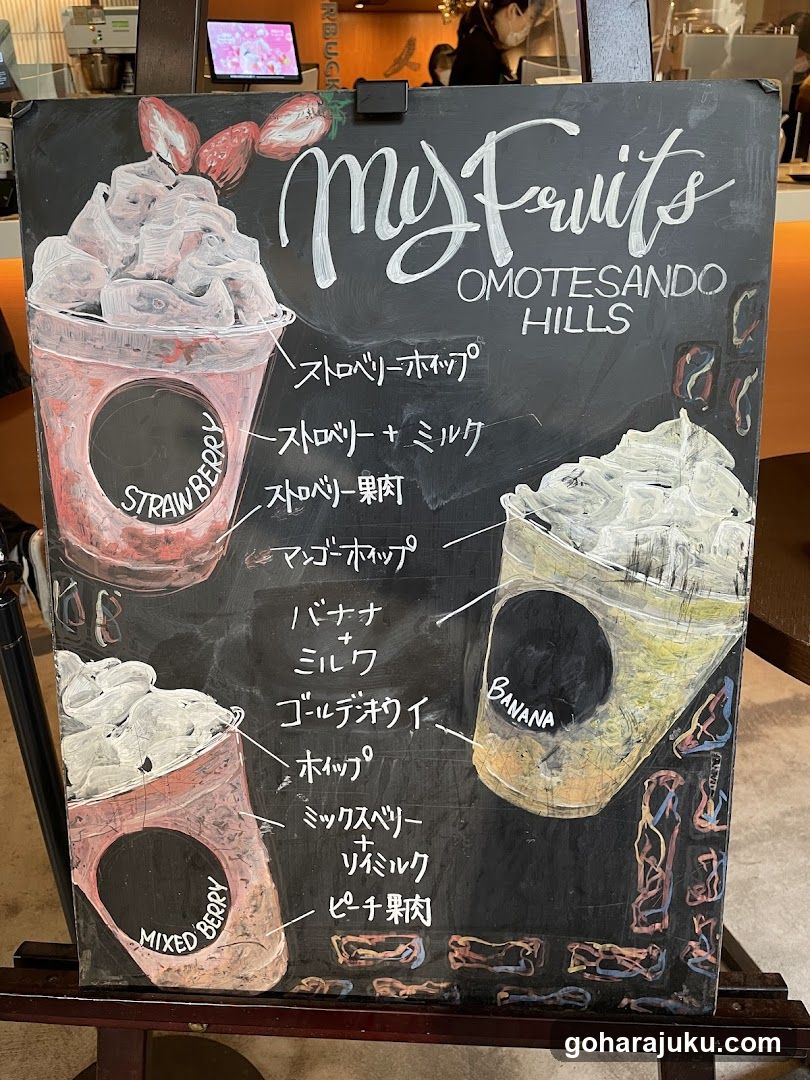 RBUCK
My Fruits
OMOTESANDO
HILLS
ストロベリーホイップ
ストロベリー + ミルク
STRAWBERRY
ストロベリー果肉
マンゴーホイップ
バナナ
+
ミルク
BANANA
ゴールデンキウイ
ホイップ
ミックスベリー
+
ソイミルク
MIXED BERRY
ピーチ果肉
goharajuku.com